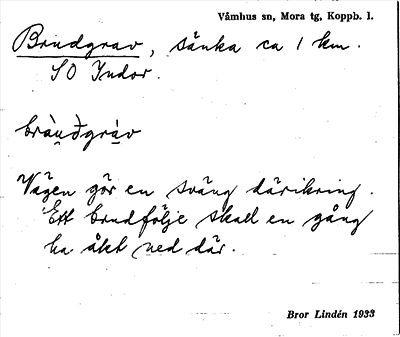 Våmhus sn, Mora tg, Koppb. l.
Brudgrav, sänka ca 1 km.
SO Indor.
brạ̀ụðgrạ̀v
Vägen gör en sväng däríkring.
Ett brudfölje skall en gång
ha åkt ned där.
Bror Lindén 1933